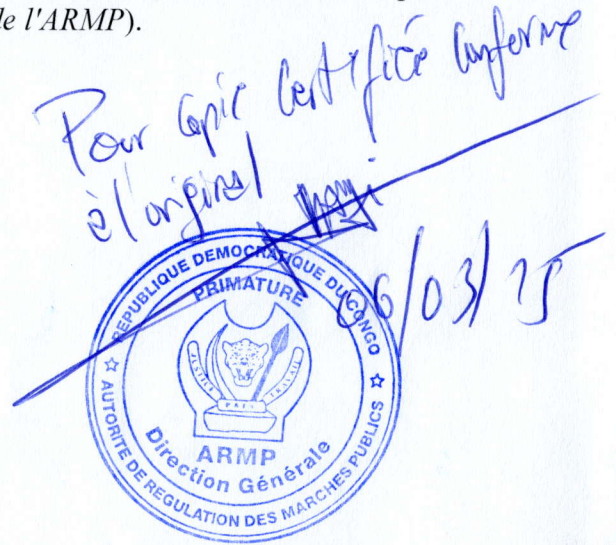 de l'ARMP).
Pour Copie Certifiée Conforme
à l'original
06/03/25
REPUBLIQUE DEMOCRATIQUE DU CONGO
PRIMATURE
JUSTICE PAIX TRAVAIL
ARMP
Direction Générale
☆ AUTORITE DE REGULATION DES MARCHES PUBLICS ☆